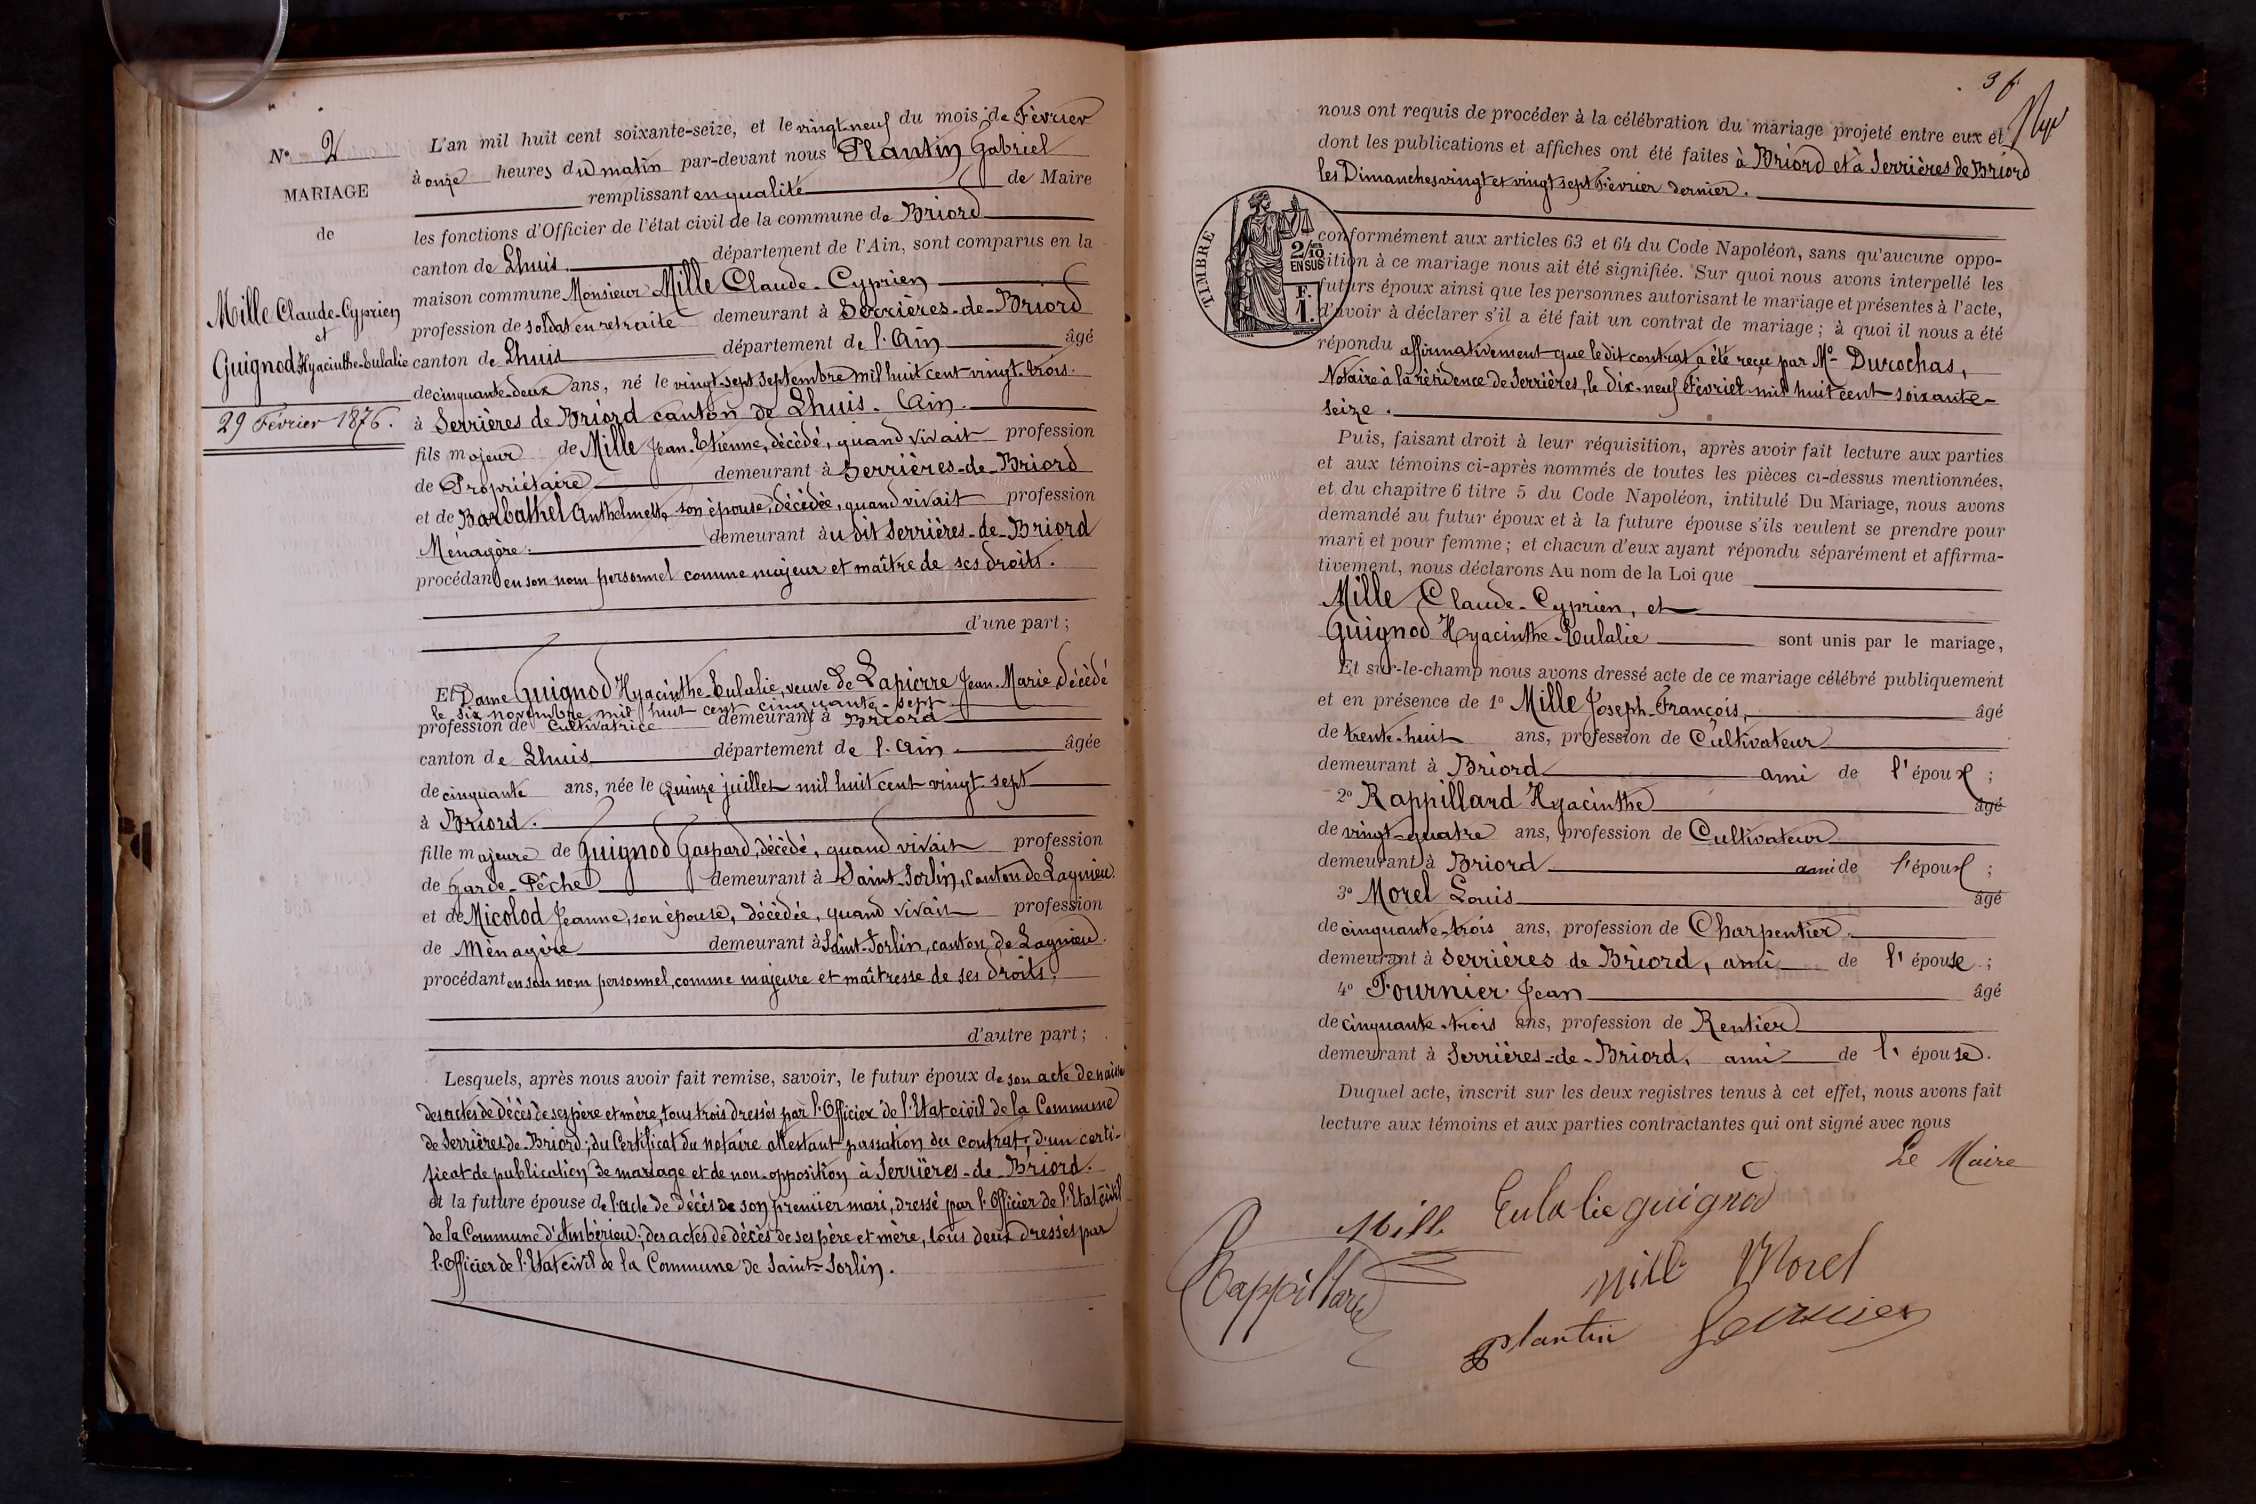 N° 2
MARIAGE
de
Mille Claude-Cyprien
et
Guignod Hyacinthe-Eulalie
29 Février 1876.
L'an mil huit cent soixante-seize, et le vingt-neuf du mois de Février
à onze heures du matin par-devant nous Plantin Gabriel
remplissant en qualité de Maire
les fonctions d'Officier de l'état civil de la commune de Briord
canton de Lhuis département de l'Ain, sont comparus en la
maison commune Monsieur Mille Claude-Cyprien
profession de soldat en retraite demeurant à Serrières-de-Briord
canton de Lhuis département de l'Ain âgé
de cinquante-deux ans, né le vingt-sept Septembre mil huit cent vingt-trois.
à Serrières de Briord canton de Lhuis. Ain.
fils majeur de Mille Jean-Etienne, décédé, quand vivait profession
de Propriétaire demeurant à Serrières-de-Briord
et de Barbathel Anthelmette, son épouse, décédée, quand vivait profession
Ménagère. demeurant au dit Serrières-de-Briord
procédant en son nom personnel comme majeur et maître de ses droits.
d'une part ;
Et Dame Guignod Hyacinthe-Eulalie, veuve de Lapierre Jean-Marie, décédé
le six novembre mil huit cent cinquante-sept
profession de Cultivatrice demeurant à Briord
canton de Lhuis département de l'Ain âgée
de cinquante ans, née le quinze juillet mil huit cent vingt sept
à Briord.
fille majeure de Guignod Gaspard, décédé, quand vivait profession
de Garde-Pêche demeurant à Saint-Sorlin, Canton de Lagnieu.
et de Micolod Jeanne, son épouse, décédée, quand vivait profession
de Ménagère demeurant à Saint-Sorlin, canton de Lagnieu.
procédant en son nom personnel, comme majeure et maîtresse de ses droits ;
d'autre part ;
Lesquels, après nous avoir fait remise, savoir, le futur époux de son acte de naiss
des actes de décès de ses père et mère, tous trois dressés par l'Officier de l'Etat civil de la Commune
de Serrières de Briord ; du Certificat du notaire attestant passation du contrat, d'un certi-
ficat de publication de mariage et de non-opposition à Serrières-de-Briord.
et la future épouse de l'acte de décès de son premier mari, dressé par l'Officier de l'Etat civil
de la Commune d'Ambérieu ; des actes de décès de ses père et mère, tous deux dressés par
l'Officier de l'Etat civil de la Commune de Saint-Sorlin.
nous ont requis de procéder à la célébration du mariage projeté entre eux et
dont les publications et affiches ont été faites à Briord et à Serrières de Briord
les Dimanches vingt et vingt sept Février dernier.
TIMBRE
2/10
EN SUS
F.
1.
conformément aux articles 63 et 64 du Code Napoléon, sans qu'aucune oppo-
sition à ce mariage nous ait été signifiée. Sur quoi nous avons interpellé les
futurs époux ainsi que les personnes autorisant le mariage et présentes à l'acte,
d'avoir à déclarer s'il a été fait un contrat de mariage ; à quoi il nous a été
répondu affirmativement que le dit contrat a été reçu par Me Durochas,
Notaire à la résidence de Serrières, le dix-neuf Février mil huit cent soixante-
seize.
Puis, faisant droit à leur réquisition, après avoir fait lecture aux parties
et aux témoins ci-après nommés de toutes les pièces ci-dessus mentionnées,
et du chapitre 6 titre 5 du Code Napoléon, intitulé Du Mariage, nous avons
demandé au futur époux et à la future épouse s'ils veulent se prendre pour
mari et pour femme ; et chacun d'eux ayant répondu séparément et affirma-
tivement, nous déclarons Au nom de la Loi que
Mille Claude-Cyprien, et
Guignod Hyacinthe-Eulalie sont unis par le mariage,
Et sur-le-champ nous avons dressé acte de ce mariage célébré publiquement
et en présence de 1° Mille Joseph-François, âgé
de trente-huit ans, profession de Cultivateur
demeurant à Briord ami de l'époux ;
2° Rappillard Hyacinthe âgé
de vingt-quatre ans, profession de Cultivateur
demeurant à Briord ami de l'époux ;
3° Morel Louis âgé
de cinquante-trois ans, profession de Charpentier.
demeurant à Serrières de Briord, ami de l'épouse ;
4° Fournier Jean âgé
de cinquante-trois ans, profession de Rentier
demeurant à Serrières-de-Briord, ami de l'épouse.
Duquel acte, inscrit sur les deux registres tenus à cet effet, nous avons fait
lecture aux témoins et aux parties contractantes qui ont signé avec nous
Le Maire
Mille Eulalie guignod
Rappillard Mille Morel
plantin Fournier